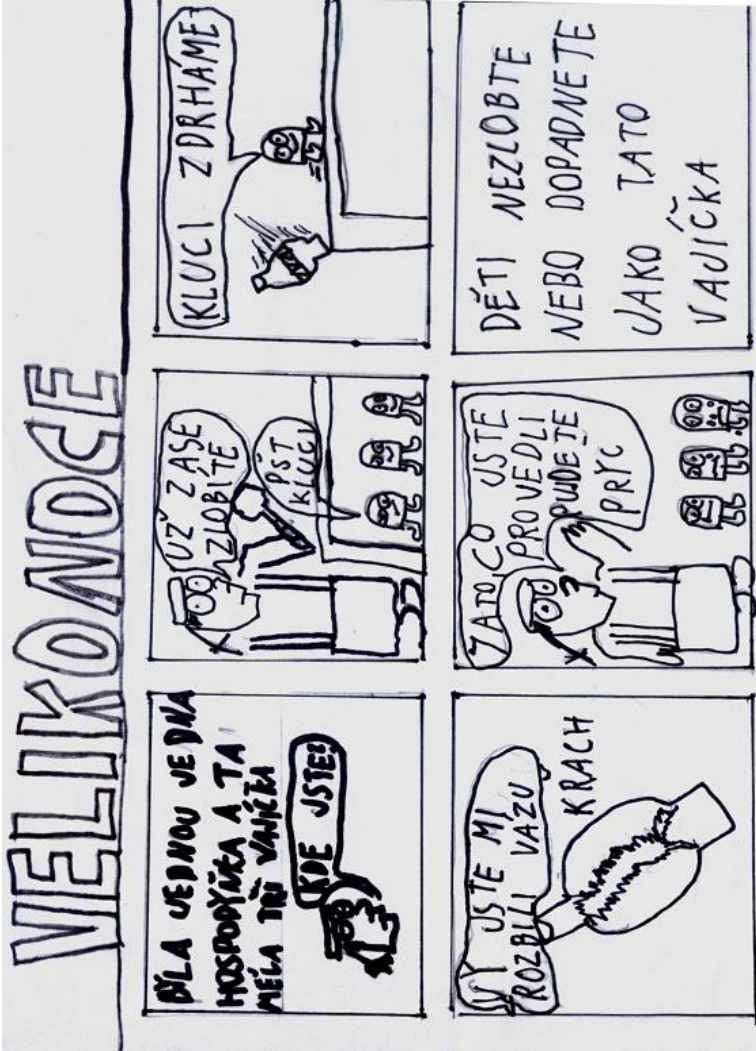 VELIKONOCE
BYLA JEDNOU JEDNA
HOSPODYŇKA A TA
MĚLA TŘI VAJÍČKA
KDE JSTE?
UŽ ZASE
ZLOBITE
PŠT
KLUCI
KLUCI ZDRHÁME
VY JSTE MI
ROZBILI VÁZU
KRACH
ZATO, CO JSTE
PROVEDLI
PUDETE
PRYC
DĚTI NEZLOBTE
NEBO DOPADNETE
JAKO TATO
VAJÍČKA